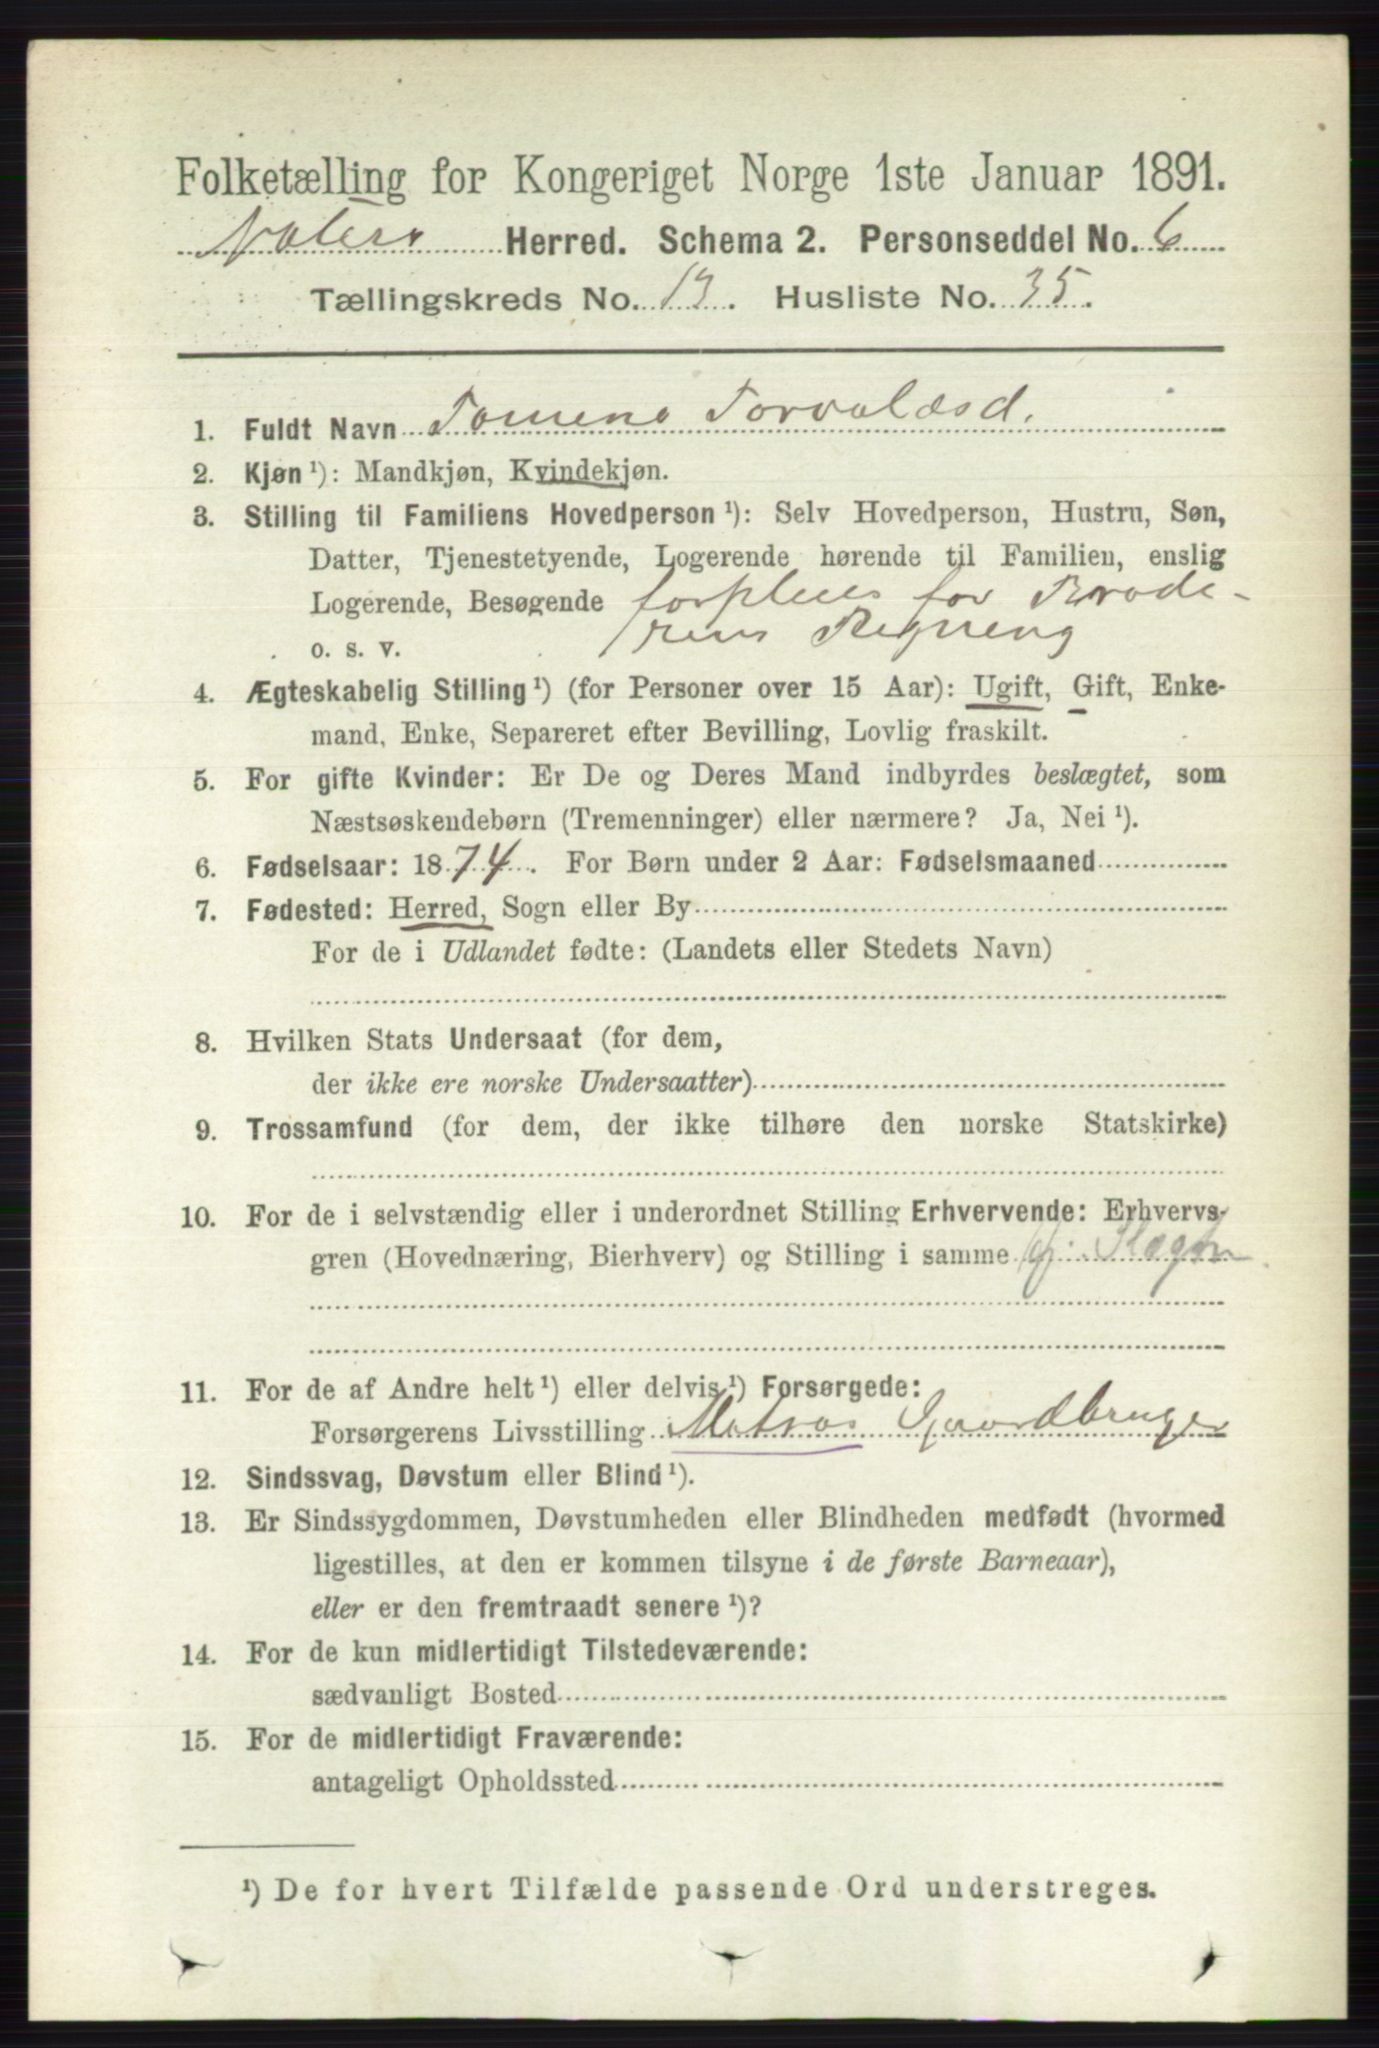 Folketælling for Kongeriget Norge 1ste Januar 1891.
Herred. Schema 2. Personseddel No. 6
Tællingskreds No. 13. Husliste No. 35.
1. Fuldt Navn Tomena Torvaldsd.
2. Kjøn ¹): Mandkjøn, Kvindekjøn.
3. Stilling til Familiens Hovedperson ¹): Selv Hovedperson, Hustru, Søn,
Datter, Tjenestetyende, Logerende hørende til Familien, enslig
Logerende, Besøgende forpleies for Brode-
o. s. v. rens Regneng
4. Ægteskabelig Stilling ¹) (for Personer over 15 Aar): Ugift, Gift, Enke-
mand, Enke, Separeret efter Bevilling, Lovlig fraskilt.
5. For gifte Kvinder: Er De og Deres Mand indbyrdes beslægtet, som
Næstsøskendebørn (Tremenninger) eller nærmere? Ja, Nei ¹).
6. Fødselsaar: 1874. For Børn under 2 Aar: Fødselsmaaned
7. Fødested: Herred, Sogn eller By
For de i Udlandet fødte: (Landets eller Stedets Navn)
8. Hvilken Stats Undersaat (for dem,
der ikke ere norske Undersaatter)
9. Trossamfund (for dem, der ikke tilhøre den norske Statskirke)
10. For de i selvstændig eller i underordnet Stilling Erhvervende: Erhvervs-
gren (Hovednæring, Bierhverv) og Stilling i samme
11. For de af Andre helt ¹) eller delvis ¹) Forsørgede:
Forsørgerens Livsstilling Matros Gaardbruger
12. Sindssvag, Døvstum eller Blind ¹).
13. Er Sindssygdommen, Døvstumheden eller Blindheden medfødt (hvormed
ligestilles, at den er kommen tilsyne i de første Barneaar),
eller er den fremtraadt senere ¹)?
14. For de kun midlertidigt Tilstedeværende:
sædvanligt Bosted
15. For de midlertidigt Fraværende:
antageligt Opholdssted
¹) De for hvert Tilfælde passende Ord understreges.